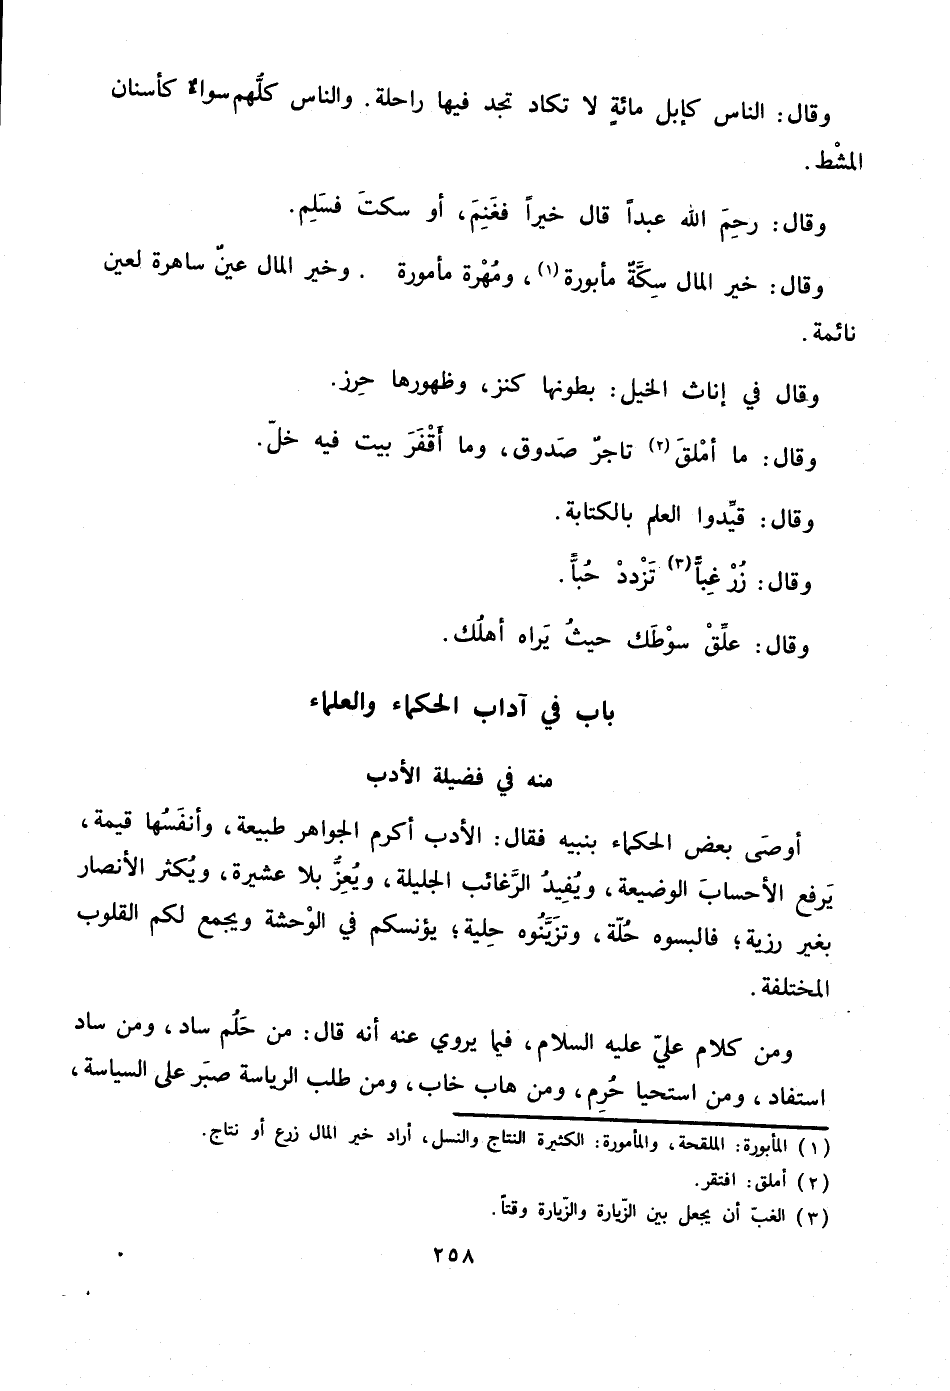 وقال: الناس كإبل مائةٍ لا تكاد تجد فيها راحلة. والناس كلُّهم سواء كأسنان
المشْط.
وقال: رحِمَ الله عبداً قال خيراً فغَنِمَ، أو سكتَ فسَلِم.
وقال: خير المال سِكَّةٌ مأبورة (١)، ومُهْرة مأمورة . وخير المال عينٌ ساهرة لعين
نائمة.
وقال في إناث الخيل: بطونها كنز، وظهورها حِرز.
وقال: ما أمْلقَ (٢) تاجرٌ صَدوق، وما أَقْفَرَ بيت فيه خلّ.
وقال: قيِّدوا العلم بالكتابة.
وقال: زُرْ غِبًّا (٣) تَزْددْ حُبًّا.
وقال: علِّقْ سوْطَك حيثُ يَراه أهلُك.
باب في آداب الحكماء والعلماء
منه في فضيلة الأدب
أوصَى بعض الحكماء بنيه فقال: الأدب أكرم الجواهر طبيعة، وأنفَسُها قيمة،
يَرفع الأحسابَ الوضيعة، ويُفيدُ الرَّغائب الجليلة، ويُعِزُّ بلا عشيرة، ويُكثر الأنصار
بغير رزية؛ فالبسوه حُلّة، وتزَيَّنُوه حِلية؛ يؤنسكم في الوْحشة ويجمع لكم القلوب
المختلفة.
ومن كلام عليّ عليه السلام، فيما يروي عنه أنه قال: من حَلُم ساد، ومن ساد
استفاد، ومن استحيا حُرِم، ومن هاب خاب، ومن طلب الرياسة صبَر على السياسة،
(١) المأبورة: الملقحة، والمأمورة: الكثيرة النتاج والنسل، أراد خير المال زرع أو نتاج.
(٢) أملق: افتقر.
(٣) الغبّ أن يجعل بين الزّيارة والزّيارة وقتاً.
٢٥٨